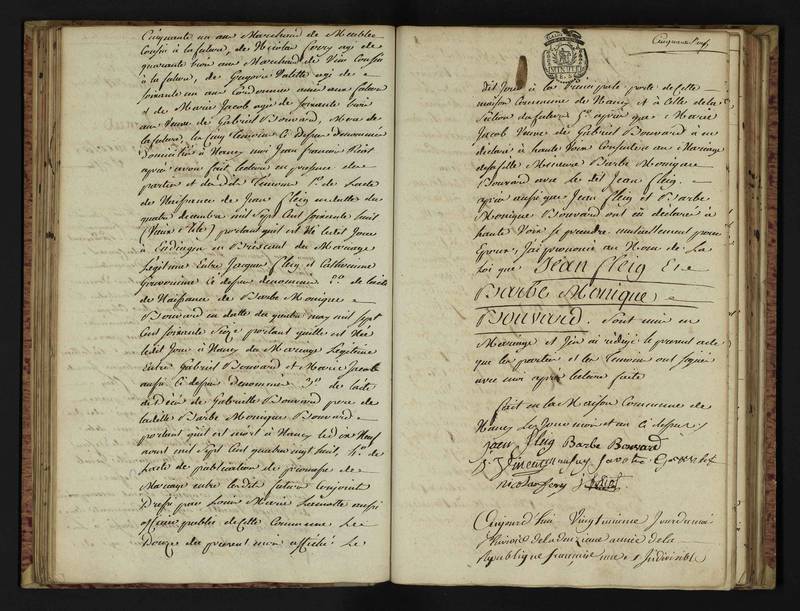 Cinquante un ans Marchand de Meubles
Cousin à la future, de Nicolas Ferry agé de
quarante trois ans Marchand de Vin Cousin
à la future, de Valette agé de
soixante un ans Cordonnier ami aux future
et de Marie Jacob agée de soixante trois
ans Veuve de Gabriel Bouvard, Mere de
la future, les cinq temoins ci dessus denommés
domiciliés à Nancy moi Jean francois
apres avoir fait lecture en presence des
parties et desdits temoins 1o. de l'acte
de Naissance de Jean fleig en datte du
quatre decembre mil sept Cent soixante huit
(Vieux Stile) portant quil est né ledit Jour
à en Briscaut du Mariage
Legitime Entre Jacques fleig et Catherinne
ci dessus denommés 2o. de l'acte
de Naissance de Barbe Monique
Bouvard en datte du quatre may mil sept
Cent soixante Seize portant quelle est Née
ledit Jour à Nancy du Mariage Legitime
entre Gabriel Bouvard et Marie Jacob
aussi ci dessus denommés 3o. de l'acte
de Décès de Gabriel Bouvard pere de
ladite Barbe Monique Bouvard
portant quil est mort à Nancy le dix Neuf
aoust mil sept Cent quatre vingt huit, 4o. de
l'acte de publication de promesse de
Mariage entre lesdits futurs conjoints
Dressé par Louis Marie aussi
officier public de cette Commune le
Douze du présent mois affiché le
Cinquante Neuf
dit Jour à la Principale porte de Cette
maison Commune de Nancy et à Celle de la
Section du future 5o. apres que Marie
Jacob Veuve de Gabriel Bouvard à eu
declaré à haute Voix Consentir au Mariage
de sa fille Mineure Barbe Monique
Bouvard avec le dit Jean fleig.
apres aussi que Jean fleig et Barbe
Monique Bouvard ont eu déclaré à
haute Voix se prendre mutuellement pour
Epoux, J'ai prononcé au Nom de La
Loi que Jean Fleig Et
Barbe Monique
Bouvard. Sont unis en
Mariage et J'en ai rédigé le présent acte
que les parties et les temoins ont signés
avec moi apres lecture faite
fait en la Maison Commune de
Nancy les Jour mois et an ci dessus
jean fleig Barbe Bouvard
Nicolas fery
Aujourd'hui Vingtieme Jour du mois
de la deuxieme année de la
Republique francaise une et Indivisible